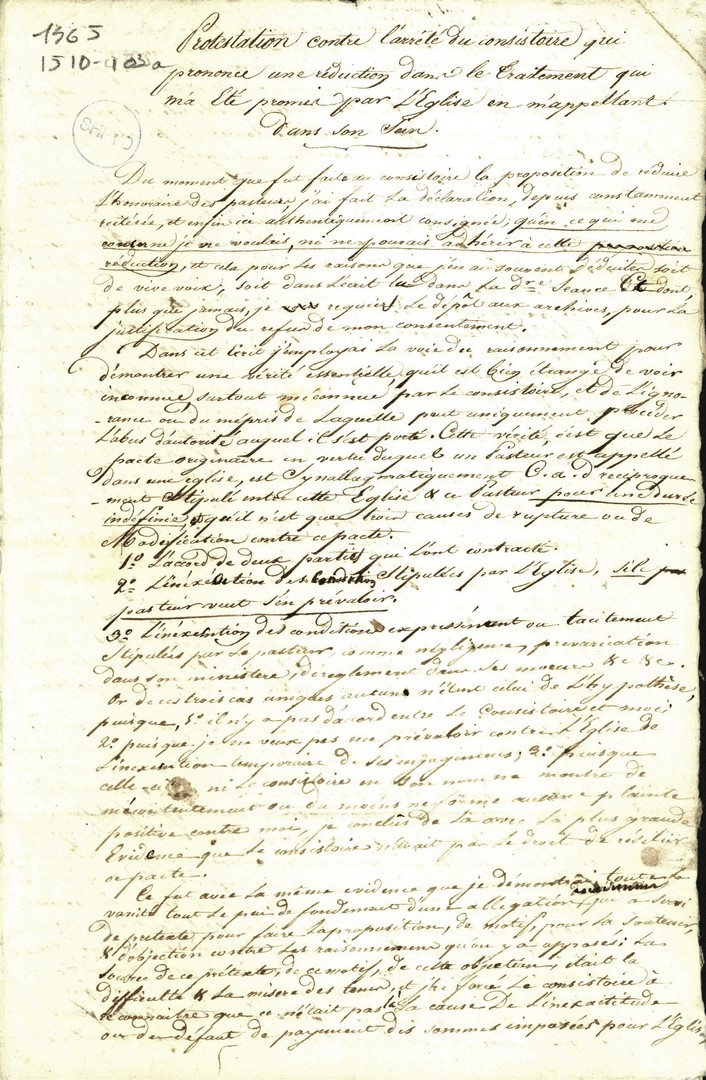 1365
1510-103a
SHPVD
Protestation contre l'arrêté du consistoire qui
prononce une réduction dans le Traitement qui
m'a Eté promis par L'Eglise en m'appellant
Dans son Sein.
Du moment que fut faite au consistoire la proposition de réduire
L'honoraire des pasteurs, j'ai fait La déclaration, depuis constamment
réiterée, et enfin ici authentiquement consignée, qu'en ce qui me
concerne je ne voulais, ni ne pouvais adhérir à cette
réduction, et cela pour Les raisons que j'en ai souvent Déduites soit
de vive voix, soit dans L'écrit lu dans La dre Seance & dont
plus que jamais, je requiers Le dépôt aux archives, pour La
justification du refus de mon consentement.
Dans cet Ecrit j'employai La voie du raisonnement pour
démontrer une vérité essentielle, qu'il est bien étrange de voir
inconnue, surtout méconnue par Le consistoire, et de L'igno-
-rance ou du mépris de Laquelle peut uniquement procéder
L'abus d'autorité auquel il s'est porté. Cette vérité, c'est que Le
pacte originaire en vertu duquel un Pasteur est appellé
dans une église, est Synallagmatiquement C. a. d réciproque
-ment Stipulé entre cette Eglise & ce Pasteur pour une Durée
indéfinie, et qu'il n'est que trois causes de rupture ou de
Modification contre ce pacte.
1º L'accord de deux parties qui L'ont contracté.
2º L'inéxecution des Conditions Stipulées par L'Eglise, si le
pasteur veut s'en prévaloir.
3º L'inéxecution des conditions expressément ou tacitement
Stipulées par Le pasteur, comme négligence, prevarication
dans son ministère, déreglement dans Ses moeurs &c &c.
Or de ces trois cas uniques aucun n'étant celui de L'hypothèse,
puisque, 1º il n'y a pas d'accord entre Le Consistoire et moi
2º puisque je ne veux pas me prévaloir contre L'Eglise de
L'inéxecution temporaire de ses engagemens; 3º puisque
celle-ci ni Le consistoire en Son nom ne montre de
mécontentement ou du moins ne forme aucune plainte
positive contre moi, je conclus de Là avec La plus grande
Evidence que Le consistoire n'avait pas Le droit de résilier
ce pacte.
Ce fut avec La même evidence que je démontrai toute la
vanité tout Le peu de fondement d'une allegation, qui a servi
de prétexte pour faire La proposition, de motif, pour La Soutenir,
& d'objection contre Les raisonnemens qu'on y a opposés: La
Source de ce prétexte, de ce motif, de cette objection, était La
difficulté & La misere des tems, et j'ai forcé Le consistoire à
reconnaitre que ce n'était pas là La cause De L'inexactitude
ou du défaut de payement des sommes imposées pour L'Eglise,